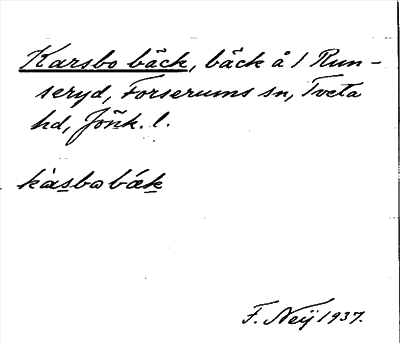 Karsbo bäck, bäck å 1 Run-
seryd, Forserums sn, Tveta
hd, Jönk. l.
kàsbo bák
F. Neij 1937.